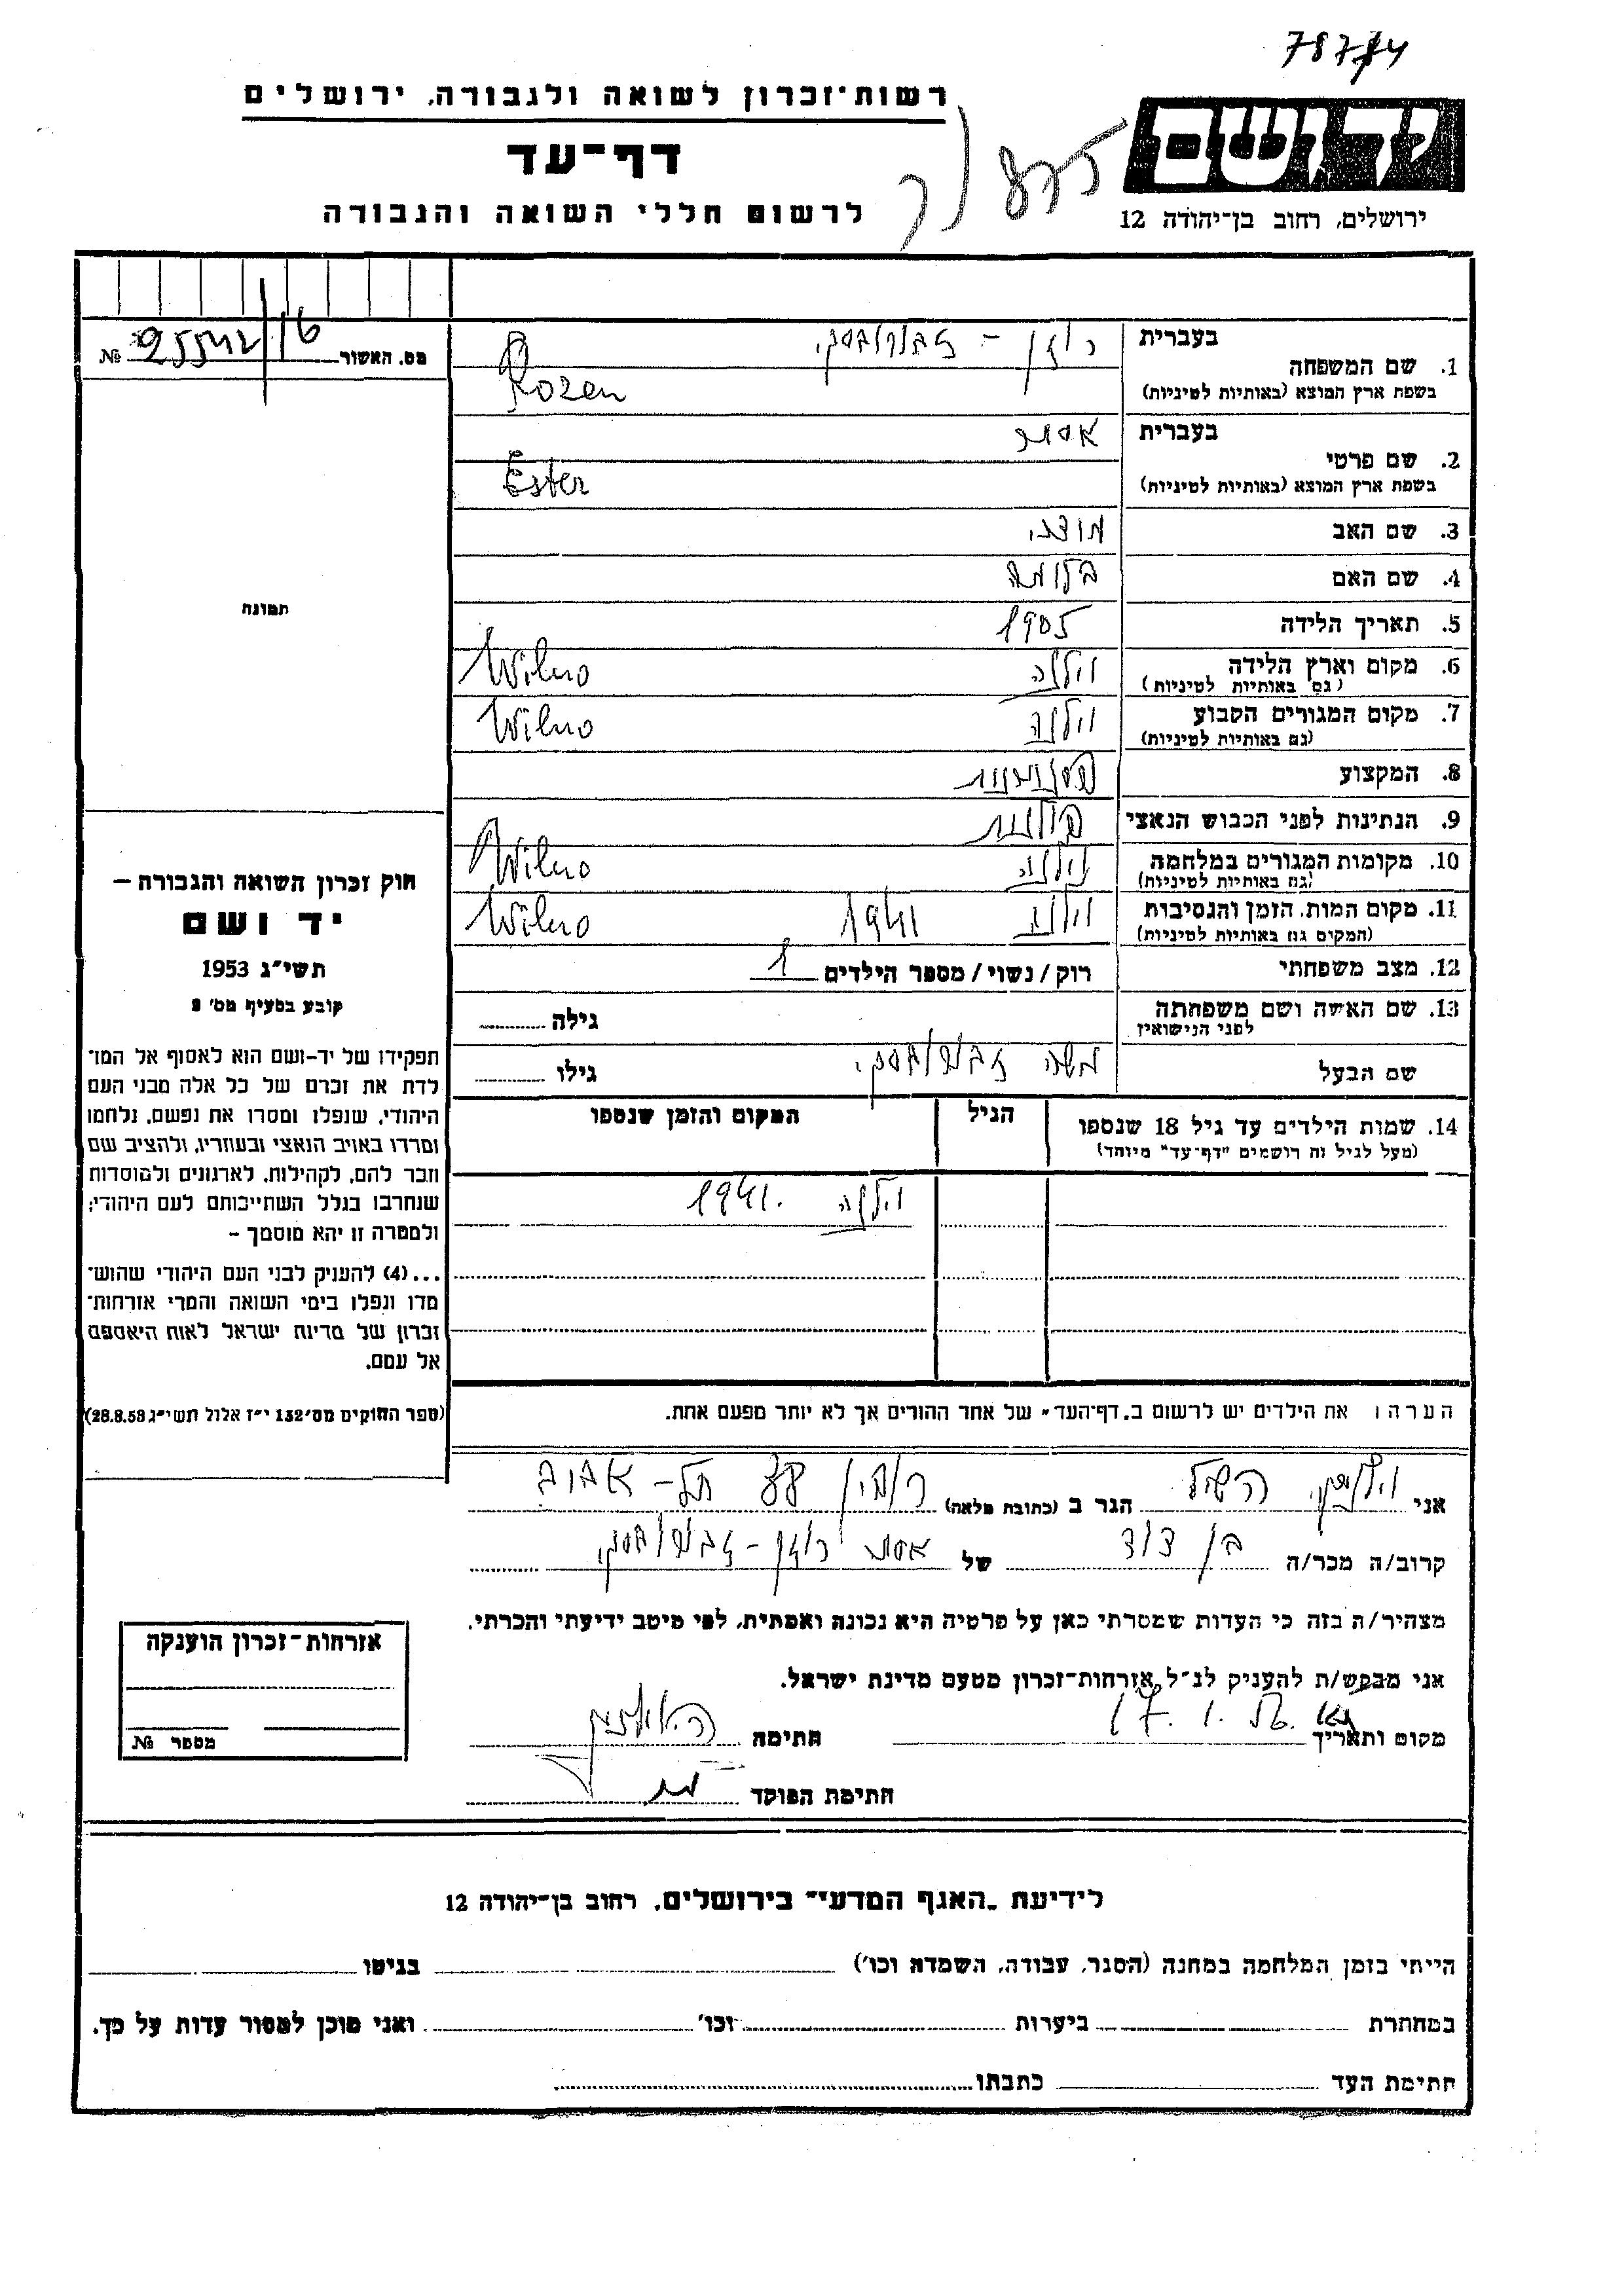 78784
רשות־זכרון לשואה ולגבורה, ירושלים
דף־עד
לרשום חללי השואה והגבורה
יד ושם
ירושלים, רחוב בן־יהודה 12
מס. האשור № 16
1. שם המשפחה בעברית רוזן -
בשפת ארץ המוצא (באותיות לטיניות) Rozen
2. שם פרטי בעברית אסתר
בשפת ארץ המוצא (באותיות לטיניות) Ester
3. שם האב
4. שם האם בלומה
5. תאריך הלידה 1905
6. מקום וארץ הלידה וילנה Wilno
(גם באותיות לטיניות)
7. מקום המגורים הקבוע וילנה Wilno
(גם באותיות לטיניות)
8. המקצוע
9. הנתינות לפני הכבוש הנאצי פולנית
10. מקומות המגורים במלחמה וילנה Wilno
(גם באותיות לטיניות)
11. מקום המות, הזמן והנסיבות וילנה 1941 Wilno
(המקום גם באותיות לטיניות)
12. מצב משפחתי רוק/נשוי/מספר הילדים 1
13. שם האשה ושם משפחתה גילה
לפני הנישואין
שם הבעל משה גילו
14. שמות הילדים עד גיל 18 שנספו הגיל המקום והזמן שנספו
(מעל לגיל זה רושמים "דף־עד" מיוחד)
וילנה 1941.
הערה: את הילדים יש לרשום ב„דף־העד" של אחד ההורים אך לא יותר מפעם אחת.
תמונה
חוק זכרון השואה והגבורה —
יד ושם
תשי"ג 1953
קובע בסעיף מס' 2
תפקידו של יד-ושם הוא לאסוף אל המו־
לדת את זכרם של כל אלה מבני העם
היהודי, שנפלו ומסרו את נפשם, נלחמו
ומרדו באויב הנאצי ובעוזריו, ולהציב שם
וזכר להם, לקהילות, לארגונים ולמוסדות
שנחרבו בגלל השתייכותם לעם היהודי;
ולמטרה זו יהא מוסמך –
...(4) להעניק לבני העם היהודי שהוש־
מדו ונפלו בימי השואה והמרי אזרחות־
זכרון של מדינת ישראל לאות היאספם
אל עמם.
(ספר החוקים מס' 132 י"ז אלול תשי"ג 28.8.53)
אני הגר ב (כתובת מלאה) תל-אביב
קרוב/ה מכר/ה בן דוד של אסתר רוזן -
מצהיר/ה בזה כי העדות שמסרתי כאן על פרטיה היא נכונה ואמתית, לפי מיטב ידיעתי והכרתי.
אני מבקש/ת להעניק לנ"ל אזרחות־זכרון מטעם מדינת ישראל.
מקום ותאריך חתימה
חתימת הפוקד
אזרחות־זכרון הוענקה
מספר №
לידיעת „האגף המדעי" בירושלים, רחוב בן־יהודה 12
הייתי בזמן המלחמה במחנה (הסגר, עבודה, השמדה וכו') בגיטו
במחתרת ביערות וכו' ואני מוכן למסור עדות על כך.
חתימת העד כתבתו